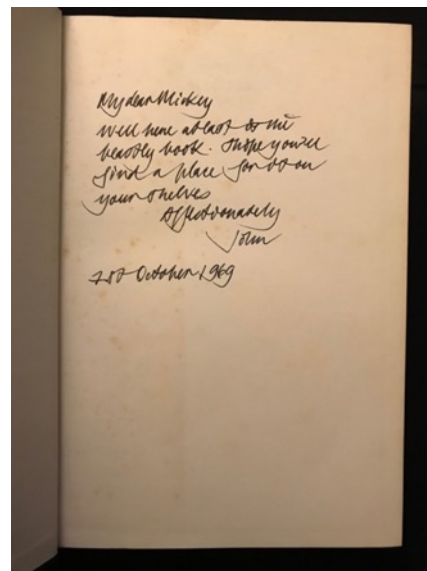 My dear Mickey
Well here at last is the
beastly book. I hope you'll
find a place for it on
your shelves
Affectionately
John
1st October 1969